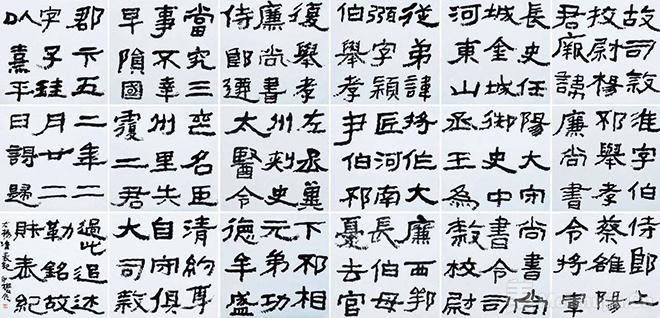 故司隸
校尉楊
君厥諱
淮字伯
邳舉孝
廉尚書
侍郎上
蔡雒陽
令將軍
長史任
城金城
河東山
陽太守
御史中
丞三為
尚書尚
書令司
隸校尉
從弟諱
弼字穎
伯舉孝
將作大
匠河南
尹伯邳
廉西鄂
長伯母
憂去官
復舉孝
廉尚書
侍郎遷
左丞冀
州刺史
太醫令
下邳相
元弟功
德牟盛
當究三
事不幸
早隕國
喪名臣
州里失
覆二君
清約身
自守俱
大司隸
郡卞玉
字子珪
以熹平
二年二
月廿二
日謁歸
過此追述
勒銘故
財表紀
右楊淮表記